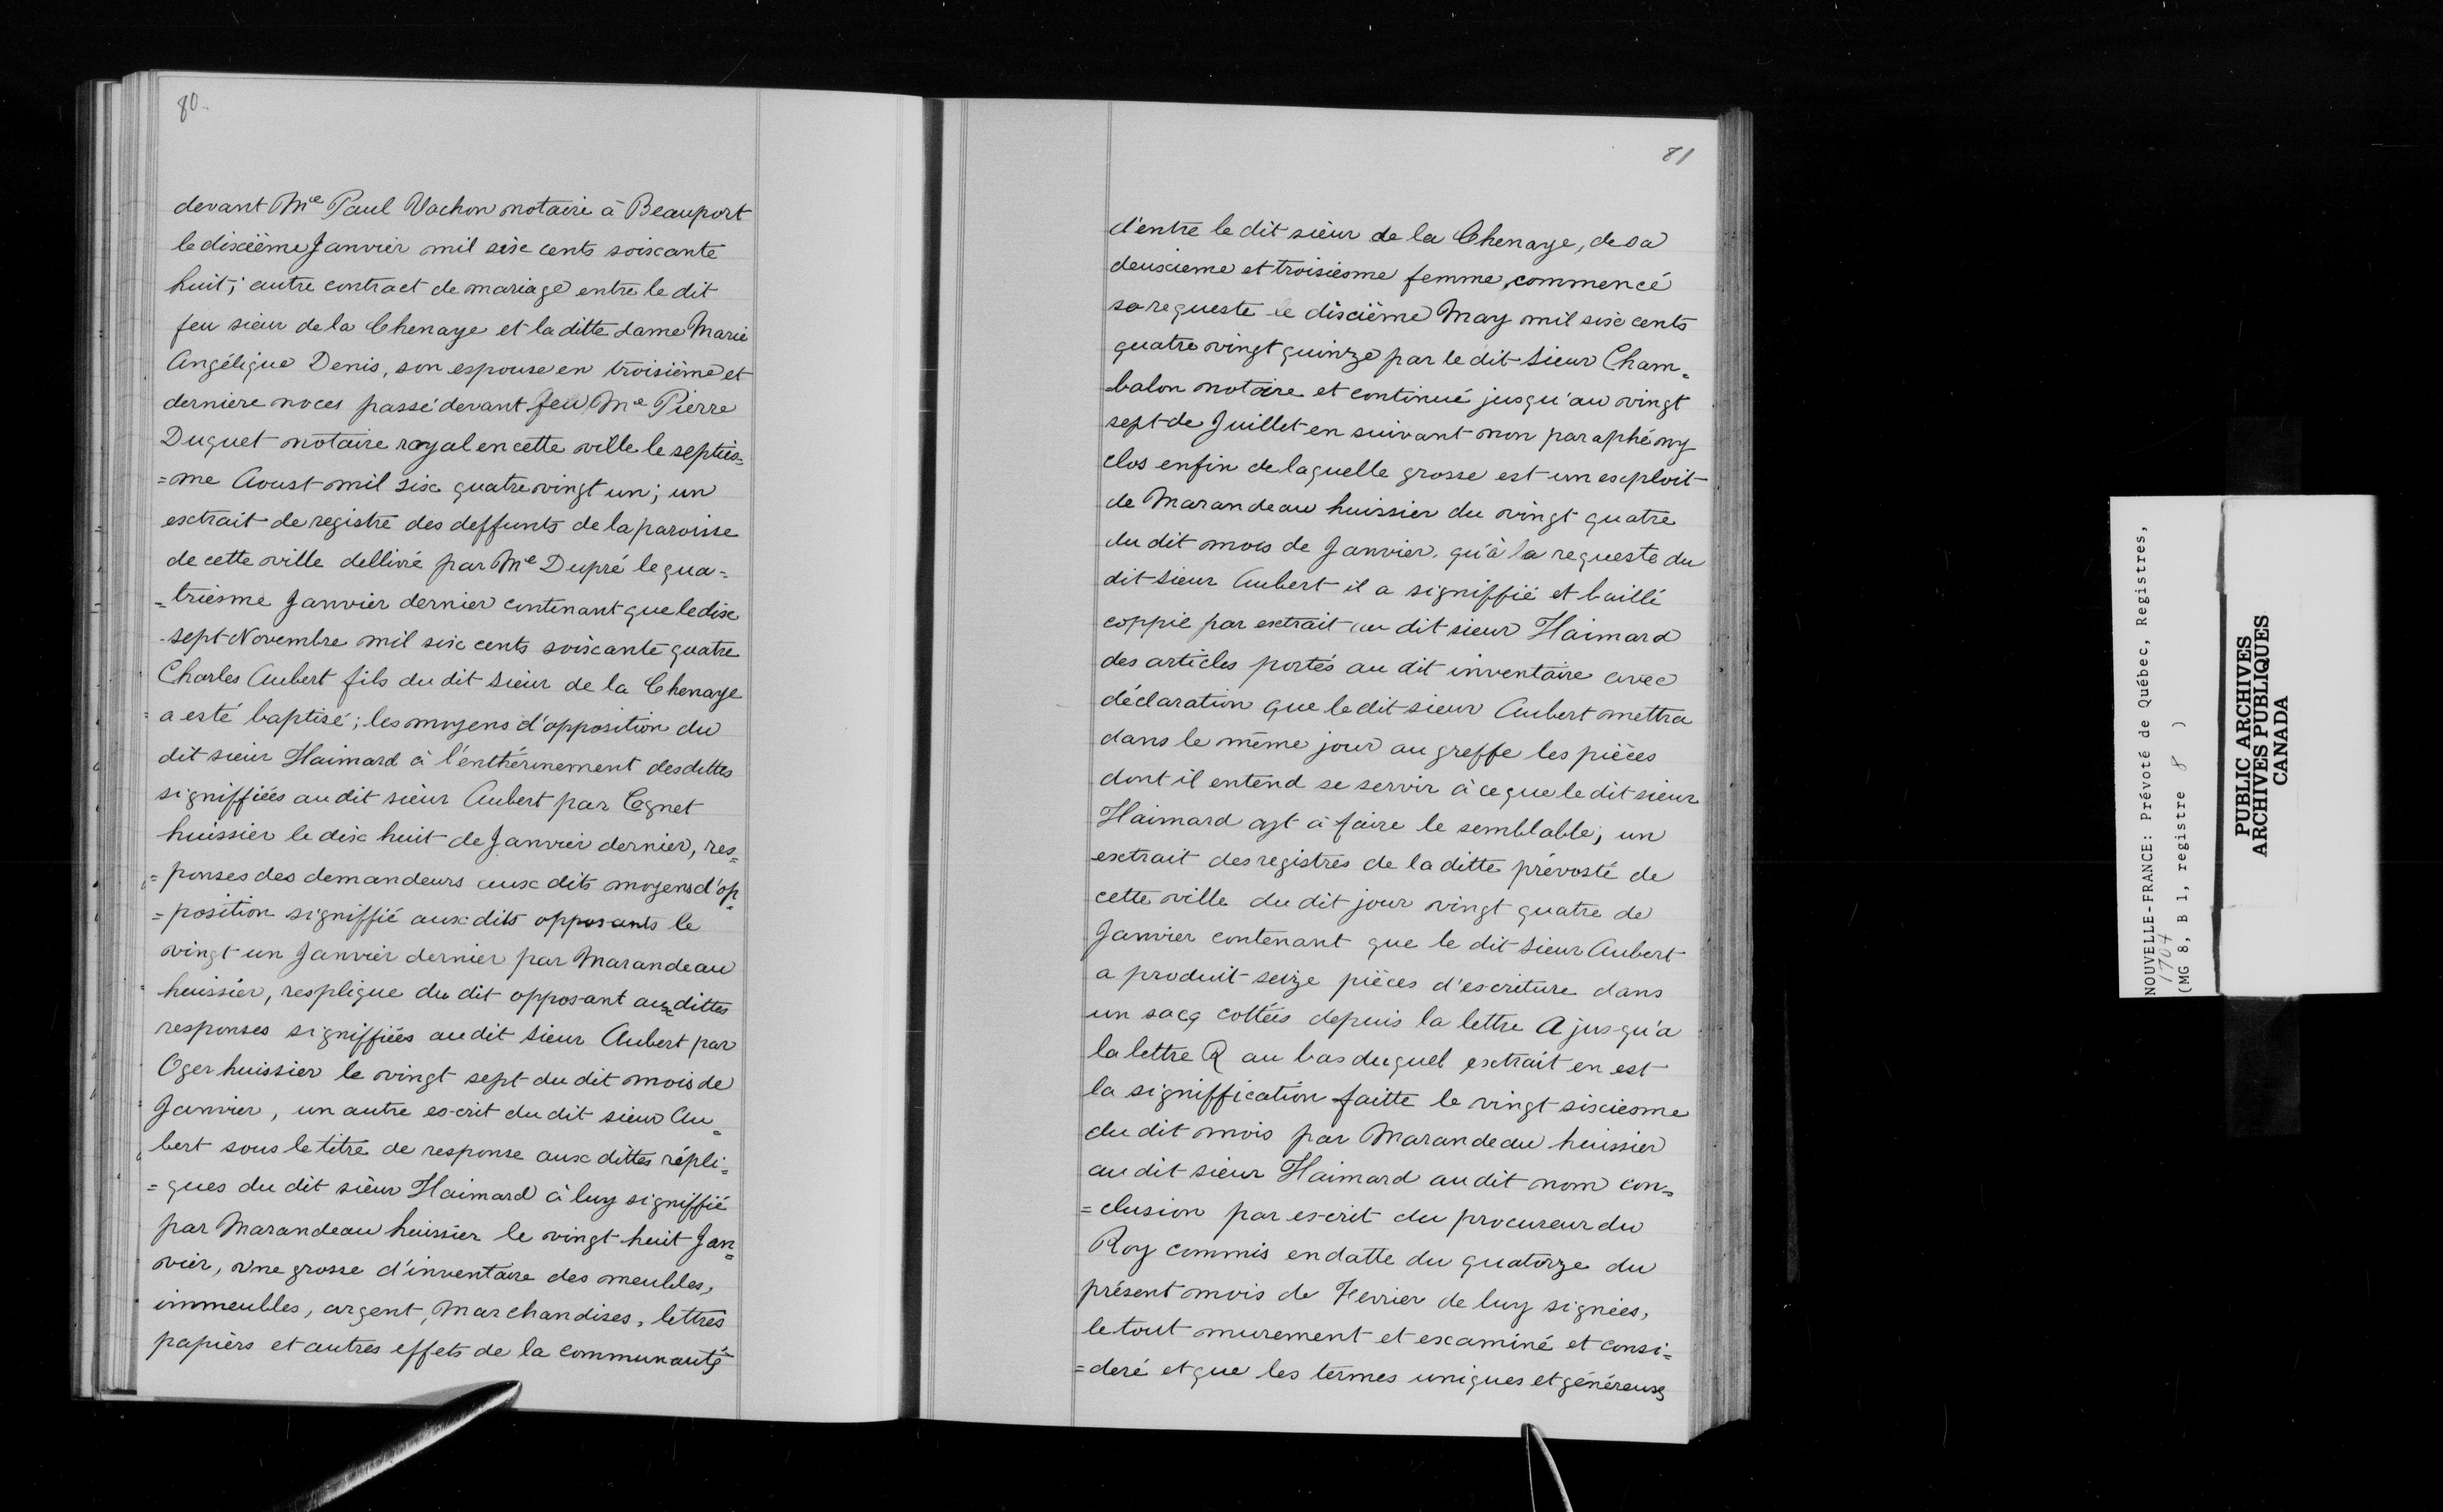 80
devant Me Paul Vachon notaire à Beauport
le dixième Janvier mil six cents soixante
huit; autre contract de mariage entre le dit
feu sieur de la Chenaye et la ditte dame Marie
Angélique Denis, son espouse en troisième et
derniere noces passé devant feu Me Pierre
Duquet notaire royal en cette ville le septies=
=me Aoust mil six quatre vingt un; un
extrait de registre des deffunts de la paroisse
de cette ville dellivré par Me Dupré le qua=
=triesme Janvier dernier contenant que le dix
sept Novembre mil six cents soixante quatre
Charles Aubert fils du dit sieur de la Chenaye
a esté baptisé; les moyens d'opposition du
dit sieur Haimard à l'enthérinement desdittes
signiffiées au dit sieur Aubert par Cognet
huissier le dix huit de Janvier dernier, res=
=ponses des demandeurs aux dits moyens d'op=
=position signiffié aux dits opposants le
vingt un Janvier dernier par Marandeau
huissier, resplique du dit opposant aux dittes
responses signiffiées au dit sieur Aubert par
Oger huissier le vingt sept du dit mois de
Janvier, un autre escrit du dit sieur Au=
bert sous le titre de response aux dittes répli=
=ques du dit sieur Haimard à luy signiffié
par Marandeau huissier le vingt huit Jan=
vier, une grosse d'inventaire des meubles,
immeubles, argent, Marchandises, lettres
papiers et autres effets de la communauté
81
d'entre le dit sieur de la Chenaye, de sa
deuxieme et troisiesme femme, commencé
sa requeste le dixième May mil six cents
quatre vingt quinze par le dit sieur Cham=
balon notaire et continué jusqu'au vingt
sept de Juillet en suivant non paraphé ny
clos enfin de laquelle grosse est un exploit
de Marandeau huissier du vingt quatre
du dit mois de Janvier, qu'à la requeste du
dit sieur Aubert il a signiffié et baillé
coppie par extrait au dit sieur Haimard
des articles portés au dit inventaire avec
déclaration que le dit sieur Aubert mettra
dans le même jour au greffe les pièces
dont il entend se servir à ce que le dit sieur
Haimard ayt à faire le semblable; un
extrait des registres de la ditte prévosté de
cette ville du dit jour vingt quatre de
Janvier contenant que le dit sieur Aubert
a produit seize pièces d'escriture dans
un sacq cottées depuis la lettre A jusqu'a
la lettre Q au bas duquel extrait en est
la signiffication faitte le vingt sixiesme
du dit mois par Marandeau huissier
au dit sieur Haimard au dit nom con=
=clusion par escrit du procureur du
Roy commis en datte du quatorze du
présent mois de Fevrier de luy signées,
le tout murement et examiné et consi=
=deré et que les termes uniques et généreux
NOUVELLE-FRANCE: Prévoté de Québec, Registres,
1704
(MG 8, B 1, registre 8 )
PUBLIC ARCHIVES
ARCHIVES PUBLIQUES
CANADA